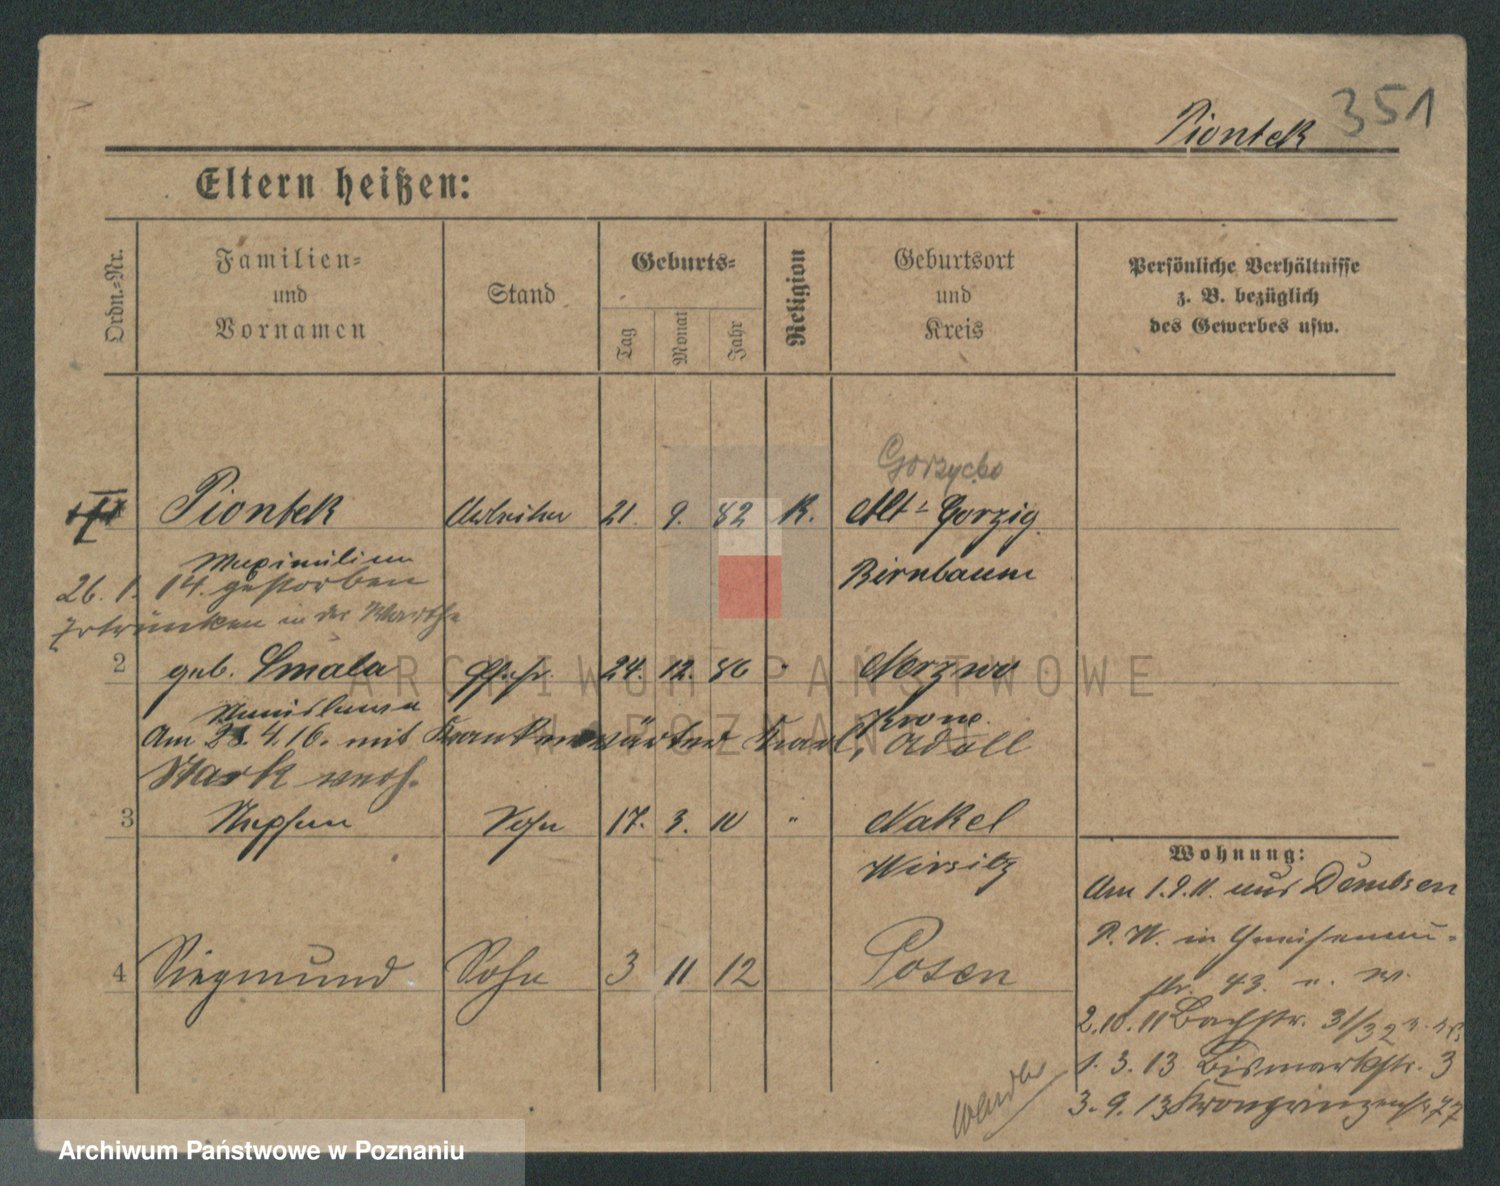 351
Piontek
Eltern heißen:
Ordn.-Nr.
Familien-
und
Vornamen
Stand
Geburts-
Tag
Monat
Jahr
Religion
Geburtsort
und
Kreis
Persönliche Verhältnisse
z. B. bezüglich
des Gewerbes usw.
Gorzycko
Piontek Arbeiter 21. 9. 82 K. Alt-Gorzig
Maximilian Birnbaum
26. 1. 14. gestorben
Ertrunken in der Warthe
2 geb. Smala Ehefr. 24. 12. 86 "
Stanislawa Krone
Am 23.4.16. mit Krankenwärter Karl, Adolf
Stark verh.
3 Stephan Sohn 17. 3. 10 " Nakel
Wirsitz
4 Siegmund Sohn 3 11 12 Posen
Wohnung:
Am 1.9.11. aus Dembsen
P. W. in Gneisenau-
str. 43.
2.10.11 Bachstr. 31/32
1. 3. 13 Bismarckstr. 3
3. 9. 13 Kronprinzenstr. 77
wenden
ARCHIWUM PAŃSTWOWE
W POZNANIU
Archiwum Państwowe w Poznaniu